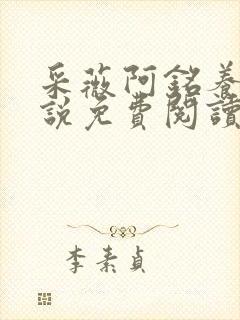 采薇阿銘養
說免費閱讀
李素貞